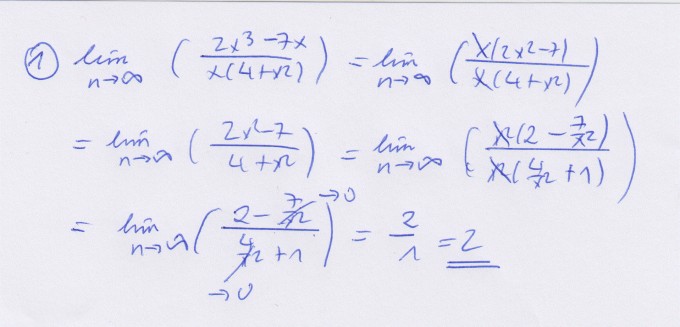 ① lim n→∞ ( (2x³ - 7x) / (x(4+x²)) ) = lim n→∞ ( (x(2x²-7)) / (x(4+x²)) )
= lim n→∞ ( (2x²-7) / (4+x²) ) = lim n→∞ ( (x²(2 - 7/x²)) / (x²(4/x² + 1)) )
= lim n→∞ ( (2 - 7/x² →0) / (4/x² + 1) ) = 2/1 = 2
→0